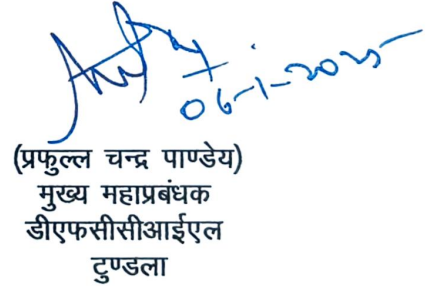 06-1-2025
(प्रफुल्ल चन्द्र पाण्डेय)
मुख्य महाप्रबंधक
डीएफसीसीआईएल
टुण्डला